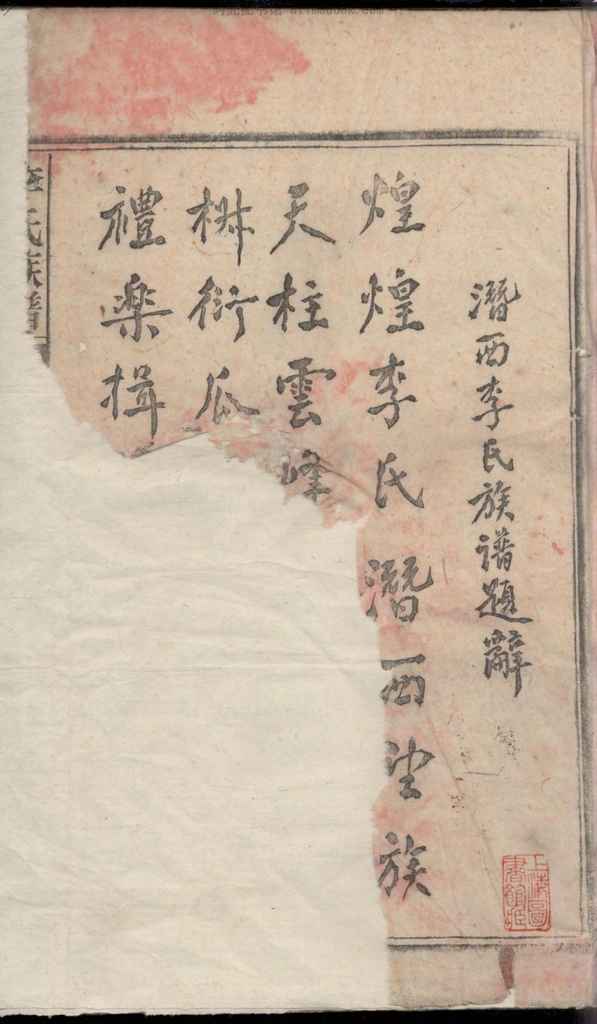 潛西李氏族譜題辭
煌煌李氏潛西望族
天柱雲峰
椒衍瓜
禮樂揖
氏族譜
上海圖
書館